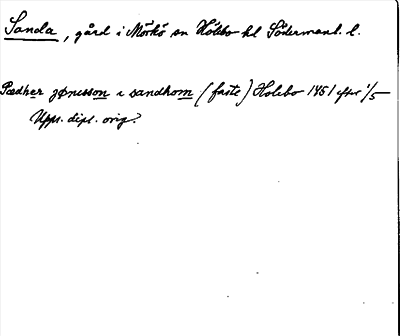 Sanda, gård i Mörkö sn Hölebo hd Södermanl. l.
Pædher jønisson i sandhom (faste) Holebo 1451 efter 1/5
Upps. dipl. orig?